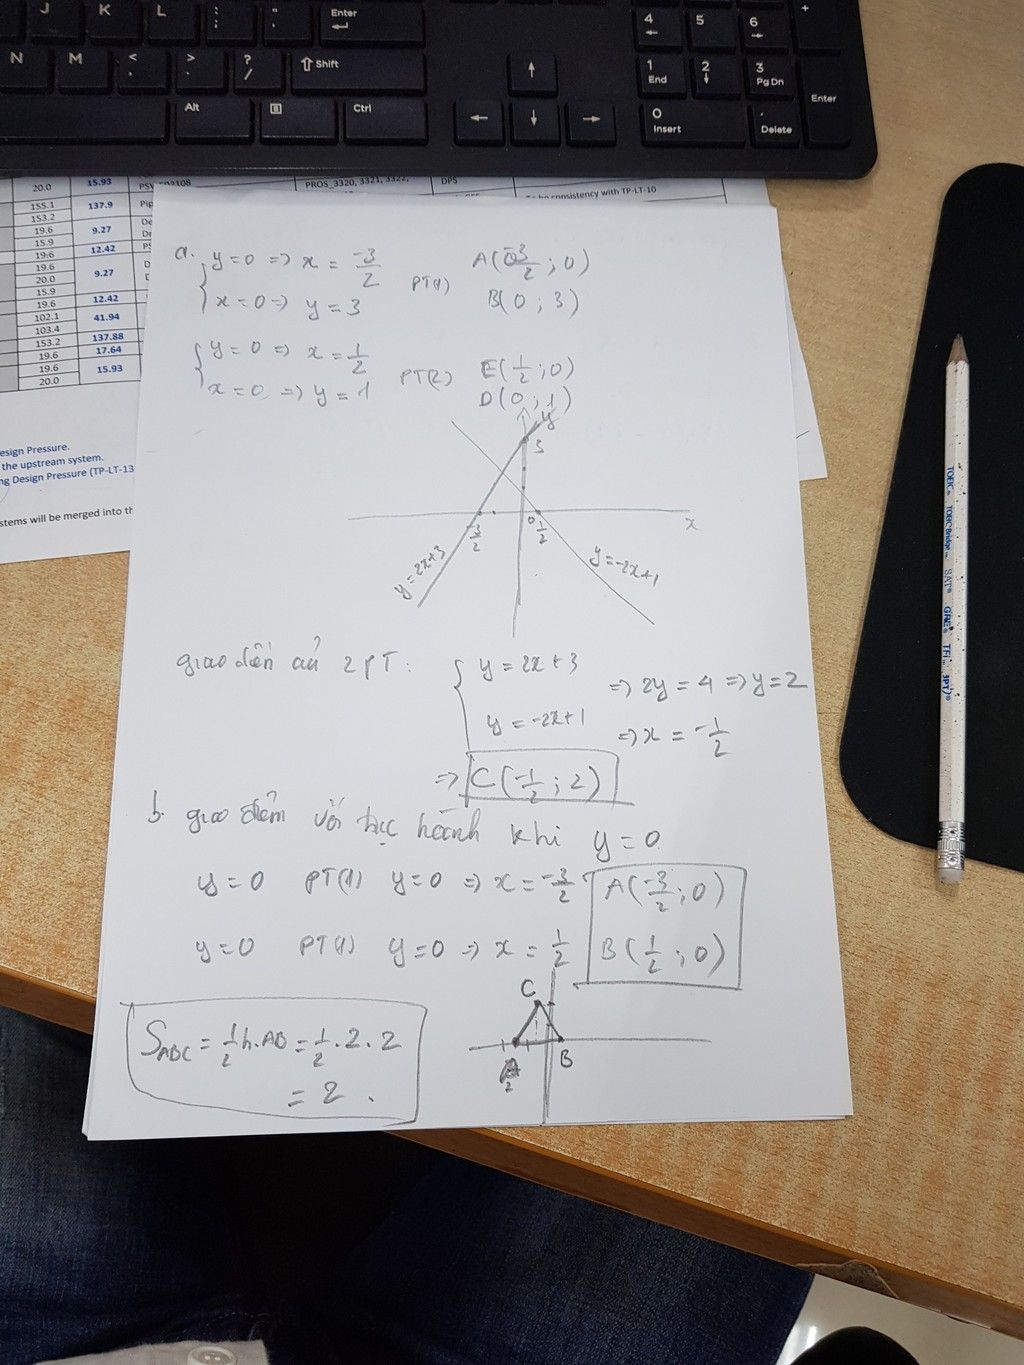 J K L : ; " ' Enter
N M < , > . ? / Shift
Alt Ctrl
4 5 6 +
1 End 2 3 Pg Dn Enter
0 Insert . Delete
20.0 15.93 PROS_3320, 3321, 3322, DPS
155.1 137.9 To be consistency with TP-LT-10
153.2
19.6 9.27
15.9
19.6 12.42
19.6 9.27
20.0
15.9
19.6 12.42
102.1 41.94
103.4
153.2 137.88
19.6 17.64
19.6 15.93
20.0
esign Pressure.
the upstream system.
ng Design Pressure (TP-LT-13
stems will be merged into th
a. { y=0 => x = -3/2 PT(1) A(-3/2 ; 0)
x=0 => y = 3 B(0 ; 3)
{ y=0 => x = 1/2 PT(2) E(1/2 ; 0)
x=0 => y = 1 D(0 ; 1)
y
3
0 1/2 x
3/2
y = 2x+3
y = -2x+1
giao điểm của 2 PT:
{ y = 2x+3 => 2y = 4 => y = 2
y = -2x+1 => x = -1/2
=> C(-1/2 ; 2)
b. giao điểm với trục hoành khi y = 0
y=0 PT(1) y=0 => x = -3/2 A(-3/2 ; 0)
y=0 PT(1) y=0 => x = 1/2 B(1/2 ; 0)
C
A B
2
S ABC = 1/2 h.AB = 1/2 . 2 . 2
= 2 .
TOEIC® TOEIC Bridge SAT® GRE®